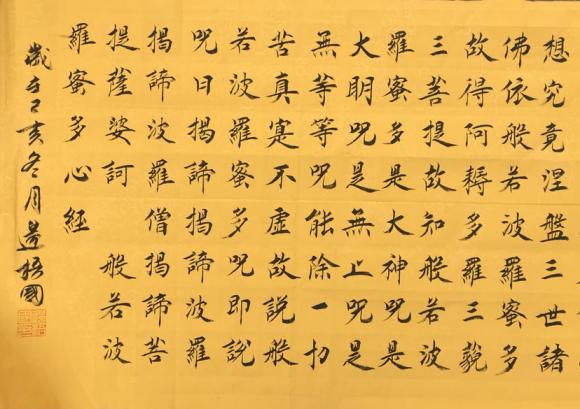 想究竟涅盤三世諸
佛依般若波羅蜜多
故得阿耨多羅三藐
三菩提故知般若波
羅蜜多是大神呪是
大明呪是無上呪是
無等等呪能除一切
苦真寔不虛故說般
若波羅蜜多呪即說
呪曰揭諦揭諦波羅
揭諦波羅僧揭諦菩
提薩婆訶 般若波
羅蜜多心經
歲在己亥冬月國